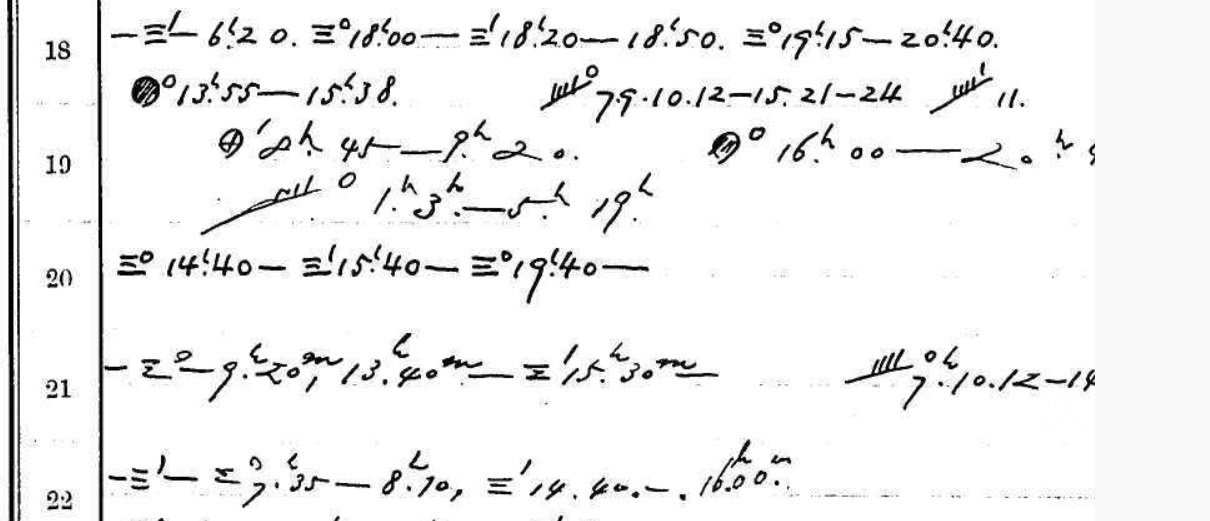 18 —≡¹— 6ʰ20. ≡⁰18ʰ00— ≡¹18ʰ20—18ʰ50. ≡⁰19ʰ15—20ʰ40.
⁰13ʰ55—15ʰ38. ⁰7.9.10.12—15.21—24 ¹11.
19 ¹8ʰ. 45—9.ʰ20. ⁰ 16.ʰ00—20.ʰ
⁰ 1.ʰ3.ʰ—5.ʰ 19.ʰ
20 ≡⁰ 14ʰ40— ≡¹15ʰ40— ≡⁰19ʰ40—
21 —≡⁰—9.ʰ20ᵐ, 13.ʰ40ᵐ— ≡¹15.ʰ30ᵐ— ⁰ʰ7.10.12—14
22 —≡¹— ≡⁰7.ʰ35—8.ʰ10, ≡¹14.40.—.16ʰ.00ᵐ.